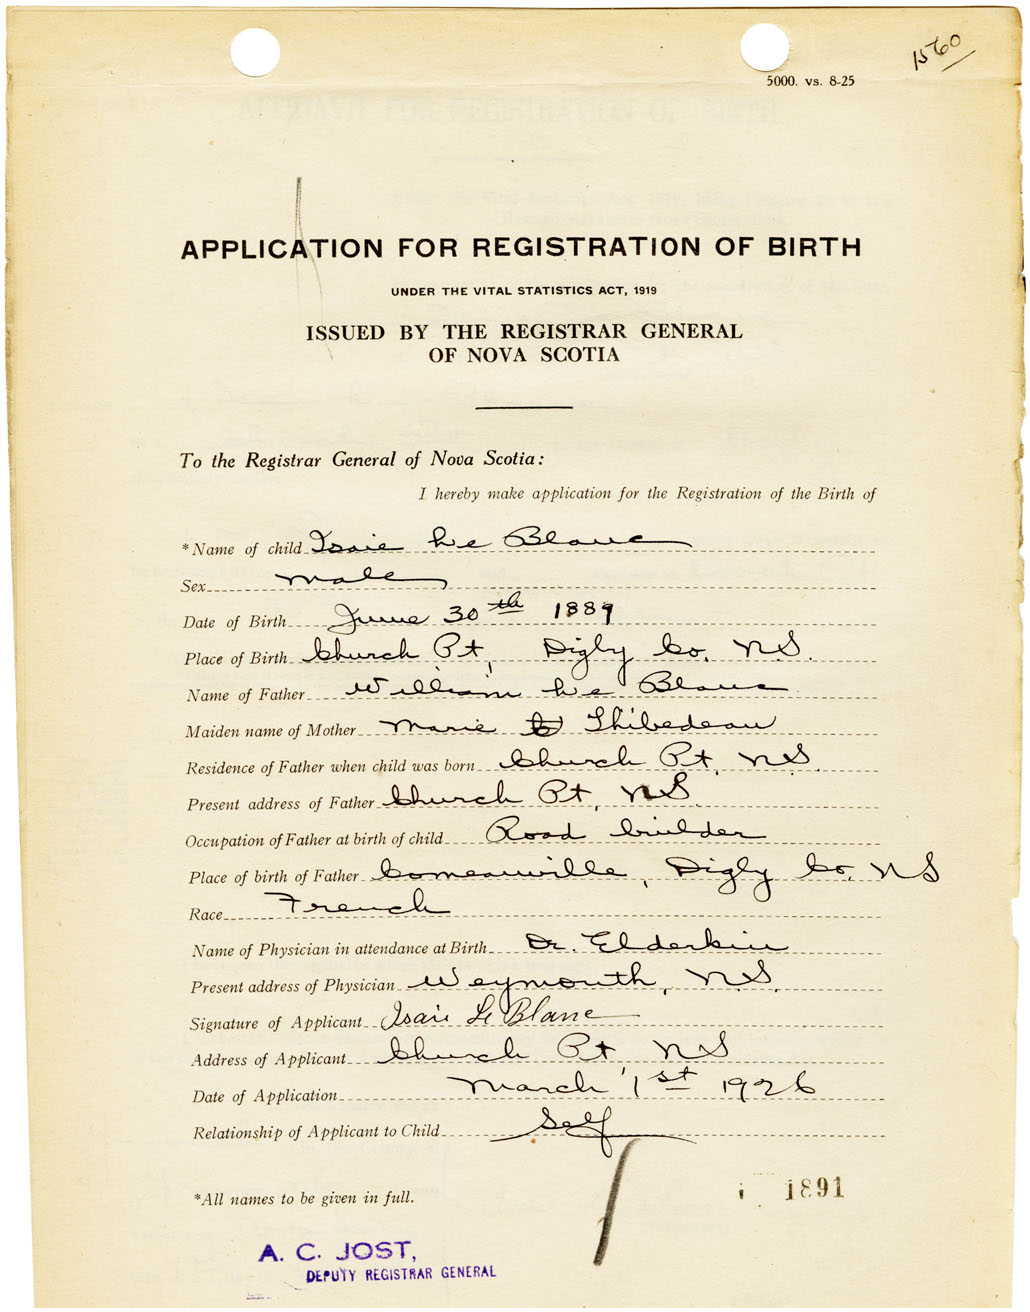 1560
5000. vs. 8-25
APPLICATION FOR REGISTRATION OF BIRTH
UNDER THE VITAL STATISTICS ACT, 1919
ISSUED BY THE REGISTRAR GENERAL
OF NOVA SCOTIA
To the Registrar General of Nova Scotia:
I hereby make application for the Registration of the Birth of
*Name of child Isaie Le Blanc
Sex Male
Date of Birth June 30th 1889
Place of Birth Church Pt, Digby Co. N.S.
Name of Father William Le Blanc
Maiden name of Mother Marie Thibedeau
Residence of Father when child was born Church Pt. N.S.
Present address of Father Church Pt, N.S.
Occupation of Father at birth of child Road builder
Place of birth of Father Comeauville, Digby Co. N S
Race French
Name of Physician in attendance at Birth Dr. Elderkin
Present address of Physician Weymouth, N.S.
Signature of Applicant Isaie Le Blanc
Address of Applicant Church Pt, N S
Date of Application March 1st 1926
Relationship of Applicant to Child Self
*All names to be given in full.
1891
A. C. JOST,
DEPUTY REGISTRAR GENERAL